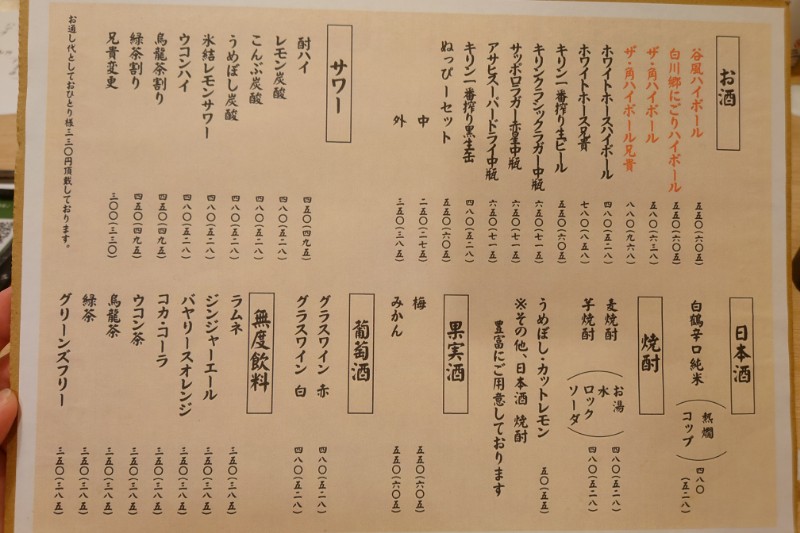 お酒
谷風ハイボール 五五〇(六〇五)
白川郷にごりハイボール 五五〇(六〇五)
ザ・角ハイボール 五八〇(六三八)
ザ・角ハイボール兄貴 八八〇(九六八)
ホワイトホースハイボール 四八〇(五二八)
ホワイトホース兄貴 七八〇(八五八)
キリン一番搾り生ビール 五五〇(六〇五)
キリンクラシックラガー中瓶 六五〇(七一五)
サッポロラガー赤星中瓶 六五〇(七一五)
アサヒスーパードライ中瓶 六五〇(七一五)
キリン一番搾り黒生缶 四八〇(五二八)
ぬっぴーセット 五五〇(六〇五)
中 二五〇(二七五)
外 三五〇(三八五)
サワー
酎ハイ 四五〇(四九五)
レモン炭酸 四八〇(五二八)
こんぶ炭酸 四八〇(五二八)
うめぼし炭酸 四八〇(五二八)
氷結レモンサワー 四八〇(五二八)
ウコンハイ 四八〇(五二八)
烏龍茶割り 四五〇(四九五)
緑茶割り 四五〇(四九五)
兄貴変更 三〇〇(三三〇)
お通し代としておひとり様三三〇円頂戴しております。
日本酒
白鶴辛口純米 (熱燗 コップ) 四八〇(五二八)
焼酎
麦焼酎 四八〇(五二八)
芋焼酎 四八〇(五二八)
(お湯 水 ロック ソーダ)
うめぼし・カットレモン 五〇(五五)
※その他、日本酒 焼酎
豊富にご用意しております
果実酒
梅 五五〇(六〇五)
みかん 五五〇(六〇五)
葡萄酒
グラスワイン 赤 四八〇(五二八)
グラスワイン 白 四八〇(五二八)
無度飲料
ラムネ 三五〇(三八五)
ジンジャーエール 三五〇(三八五)
バヤリースオレンジ 三五〇(三八五)
コカ・コーラ 三五〇(三八五)
ウコン茶 三五〇(三八五)
烏龍茶 三五〇(三八五)
緑茶 三五〇(三八五)
グリーンズフリー 三五〇(三八五)